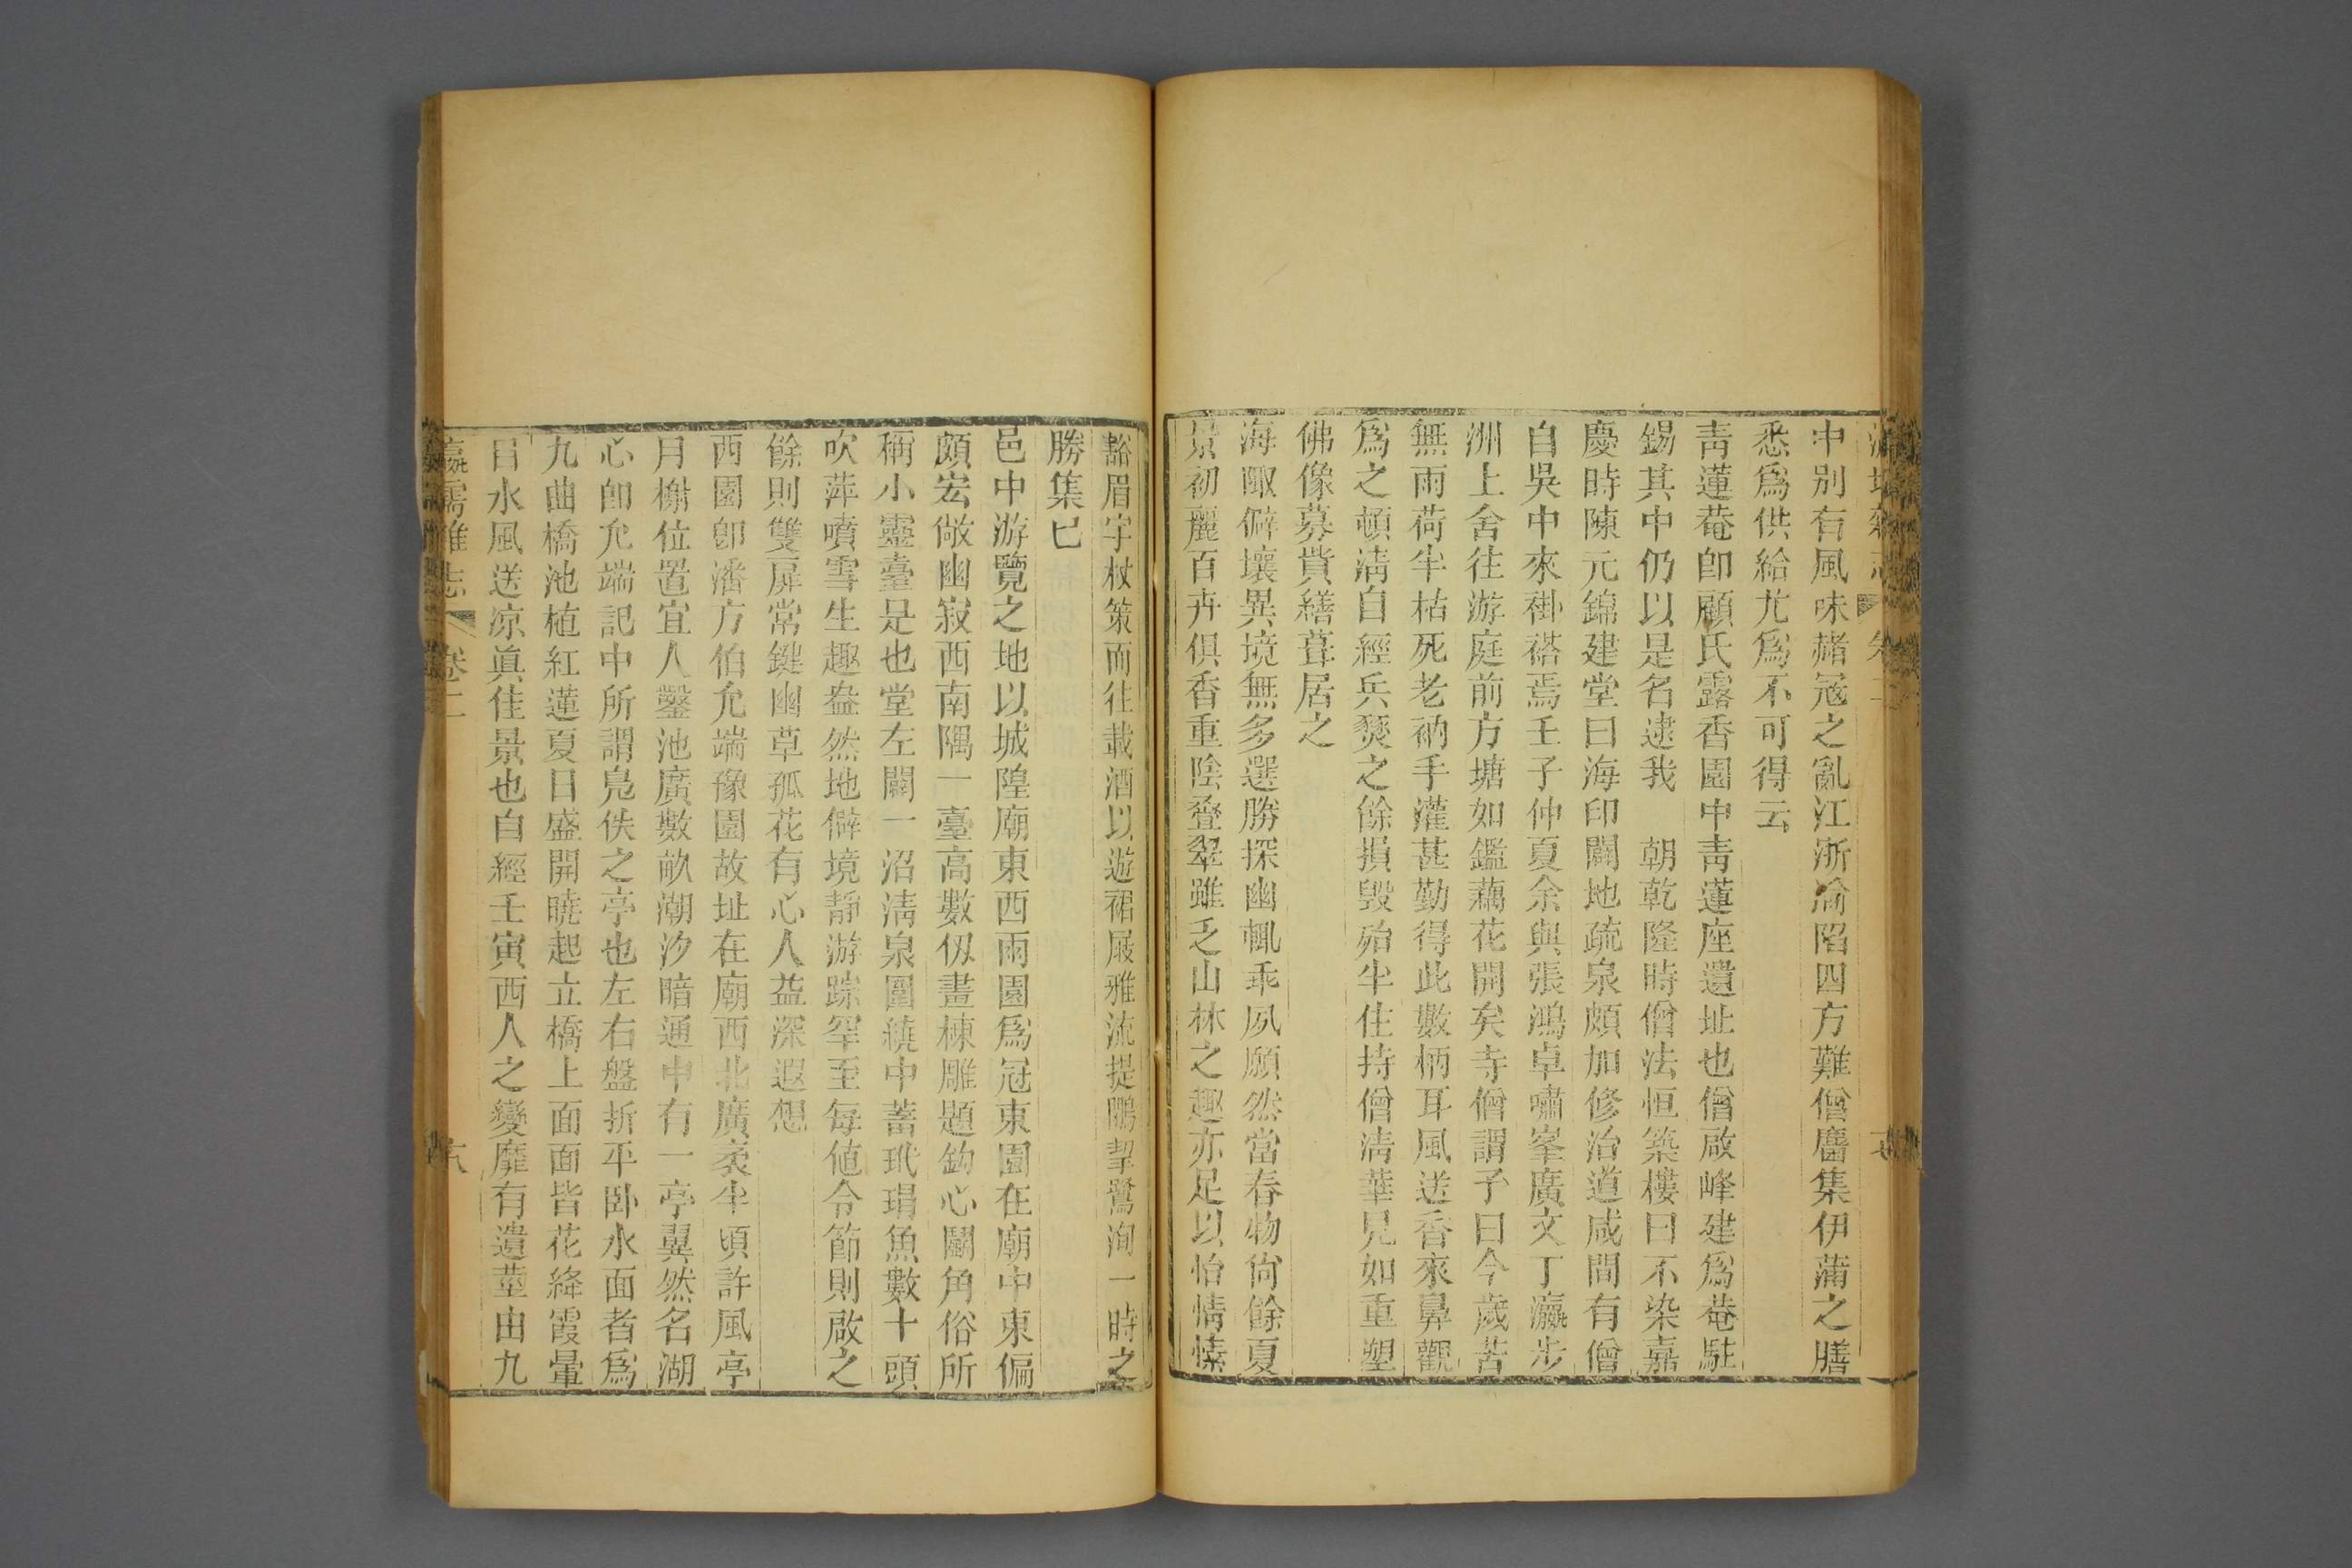 中別有風味赭寇之亂江浙淪陷四方難僧麕集伊蒲之膳
悉爲供給尤爲不可得云
青蓮菴卽顧氏露香園中青蓮座遺址也僧啟峰建爲菴駐
錫其中仍以是名逮我 朝乾隆時僧法恒築樓曰不染嘉
慶時陳元錦建堂曰海印闢地疏泉頗加修治道咸間有僧
自吳中來褂褡焉壬子仲夏余與張鴻卓嘯峯廣文丁瀛步
洲上舍往游庭前方塘如鑑藕花開矣寺僧謂予曰今歲苦
無雨荷半枯死老衲手灌甚勤得此數柄耳風送香來鼻觀
爲之頓淸自經兵燹之餘損毀殆半住持僧淸華見如重塑
佛像募貲繕葺居之
海陬僻壤異境無多選勝探幽輒乖夙願然當春物尙餘夏
景初麗百卉俱香重陰叠翠雖乏山林之趣亦足以怡情愫
豁眉宇杖策而往載酒以遊裙屐雅流提鷳挈鷺洵一時之
勝集已
邑中游覽之地以城隍廟東西兩園爲冠東園在廟中東偏
頗宏敞幽寂西南隅一臺高數仭畫棟雕題鉤心鬭角俗所
稱小靈臺是也堂左闢一沼淸泉圍繞中蓄玳瑁魚數十頭
吹萍噴雪生趣盎然地僻境靜游踪罕至每値令節則啟之
餘則雙扉常鍵幽草孤花有心人益深遐想
西園卽潘方伯允端豫園故址在廟西北廣袤半頃許風亭
月榭位置宜人鑿池廣數畝潮汐暗通中有一亭翼然名湖
心卽允端記中所謂鳧佚之亭也左右盤折平臥水面者爲
九曲橋池植紅蓮夏日盛開曉起立橋上面面皆花絳霞暈
日水風送凉眞佳景也自經壬寅西人之變靡有遺莖由九
瀛壖雜志 卷二 六